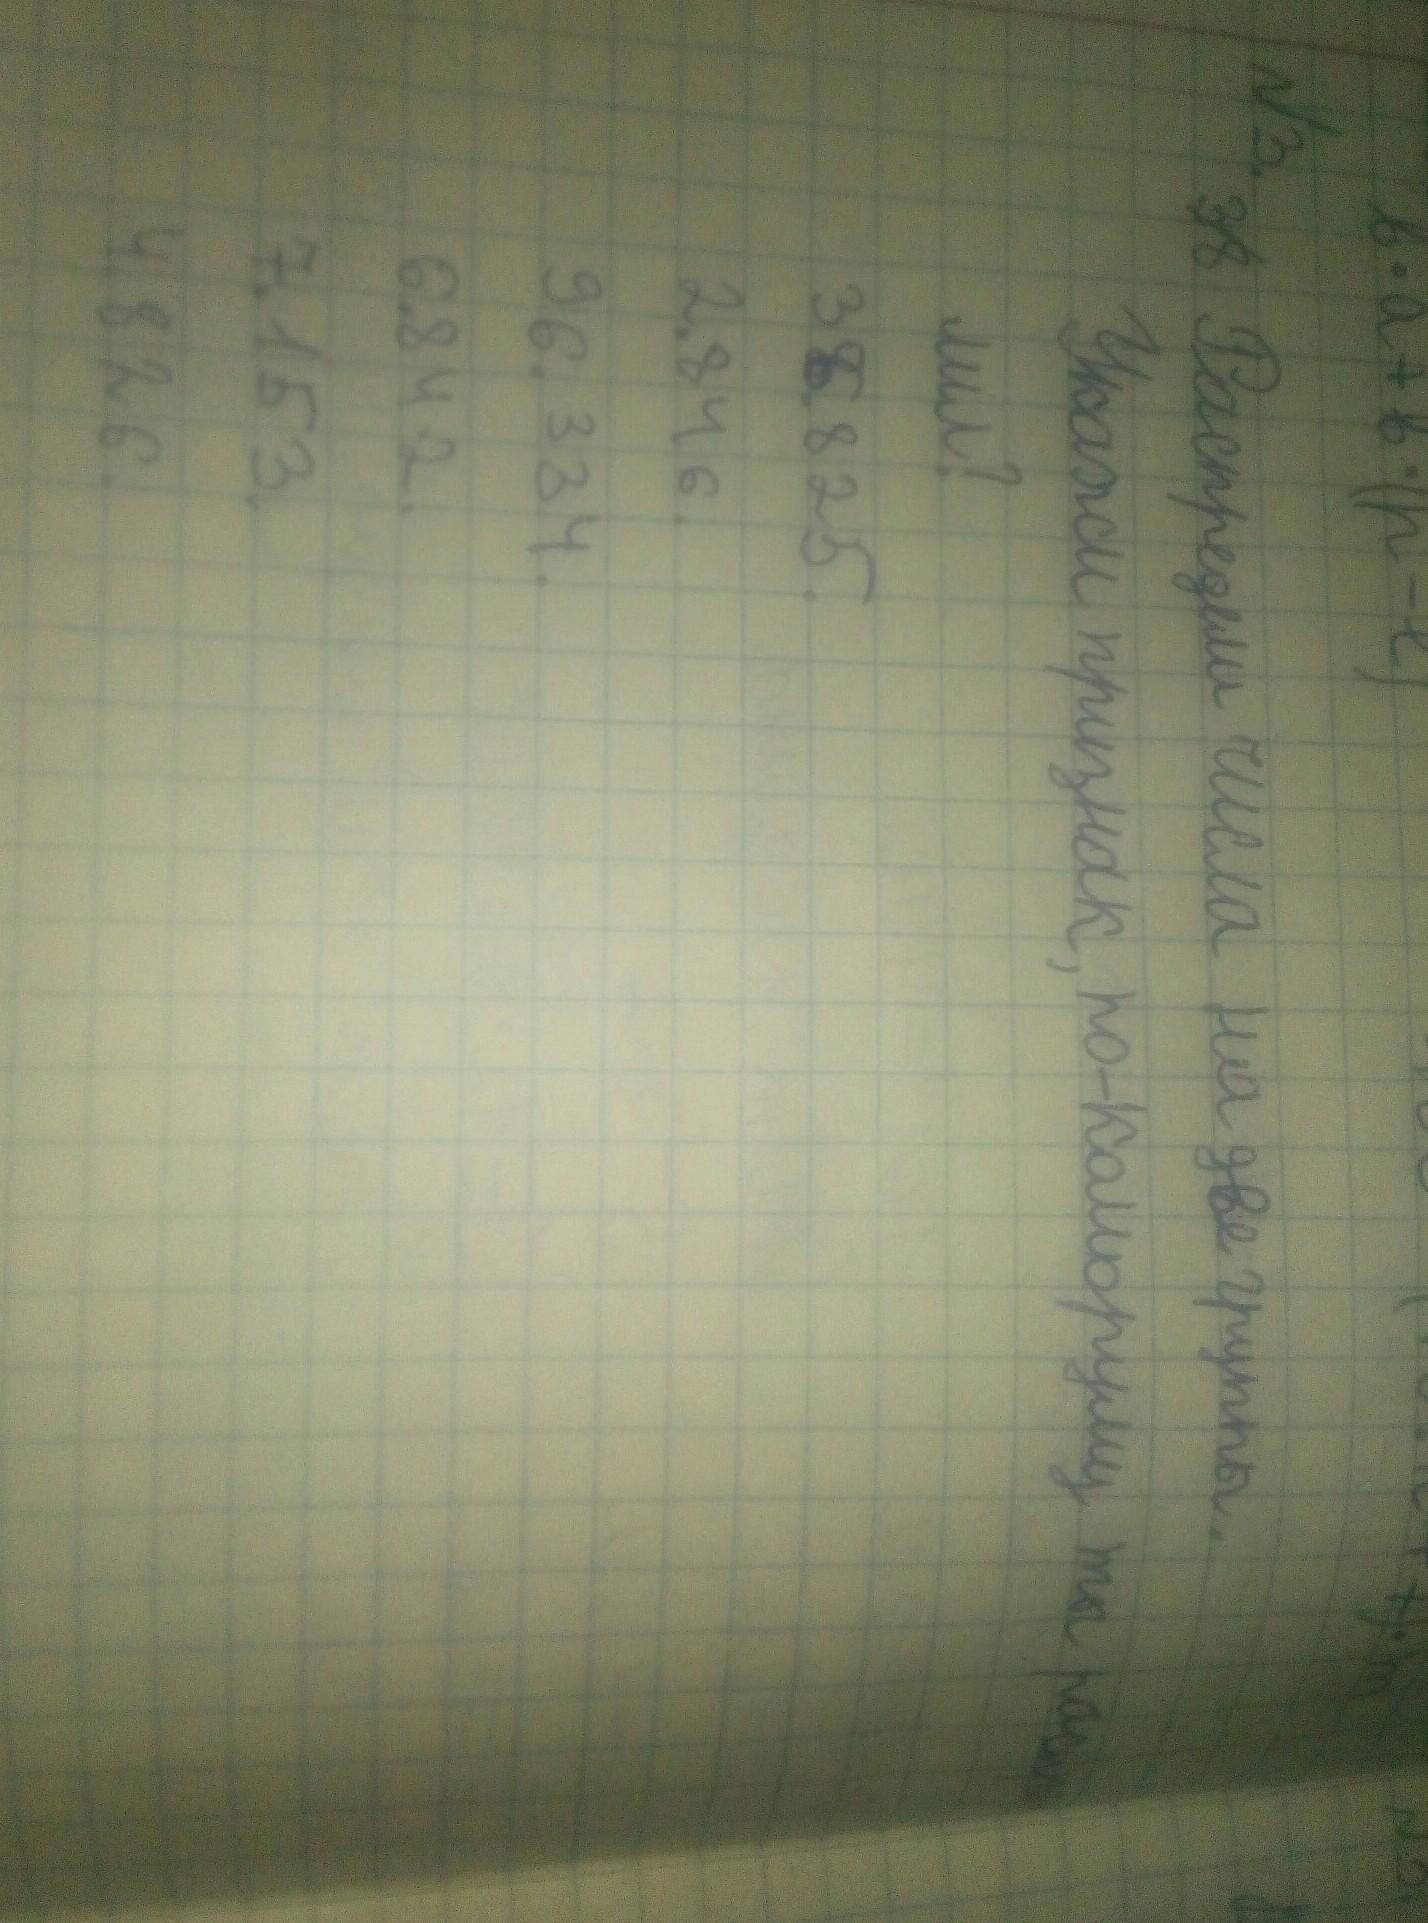 b·a+b·(n-t)
N3. Распредели числа на две группы.
Укажи признак, по-которому ты
лил?
36.825.
2.846.
96.334.
6.842.
7.153.
4.826.